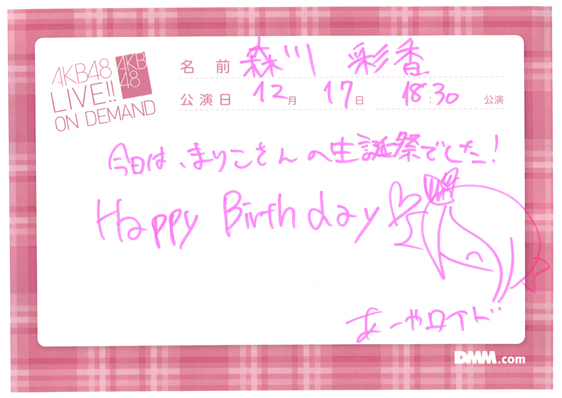 AKB48
LIVE!!
ON DEMAND
AKB
48
名前 森川 彩香
公演日 12月 17日 18:30 公演
今日は、まりこさんの生誕祭でした!
Happy Birthday
あーやロイド
DMM.com